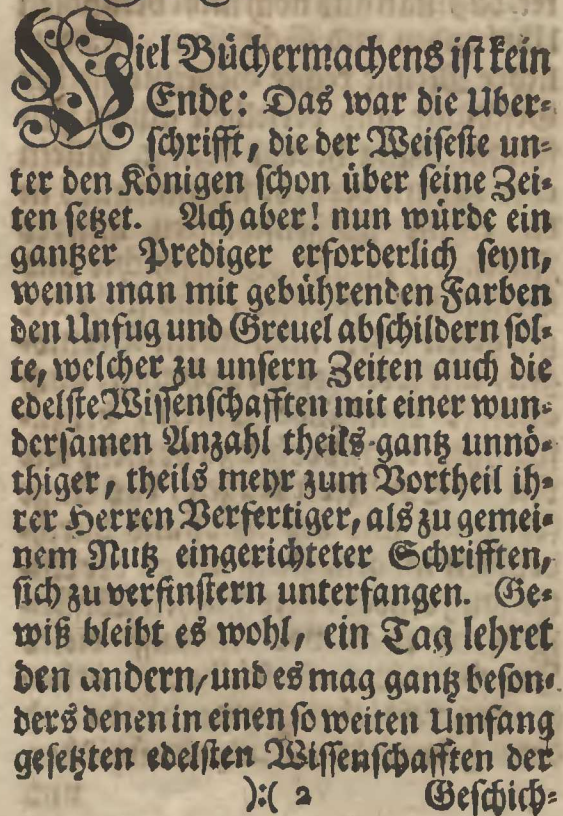 Viel Büchermachens ist kein
Ende: Das war die Uber=
schrifft, die der Weiseste un=
ter den Königen schon über seine Zei=
ten setzet. Ach aber! nun würde ein
gantzer Prediger erforderlich seyn,
wenn man mit gebührenten Farben
den Unfug und Greuel abschildern sol=
te, welcher zu unsern Zeiten auch die
edelste Wissenschafften mit einer wun=
dersamen Anzahl theils gantz unnö=
thiger, theils mehr zum Vortheil ih=
rer Herren Verfertiger, als zu gemei=
nem Nutz eingerichteter Schrifften,
sich zu verfinstern unterfangen. Ge=
wiß bleibt es wohl, ein Tag lehret
den andern, und es mag gantz beson=
ders denen in einen so weiten Umfang
gesetzten edelsten Wissenschafften der
):( 2 Geschich=